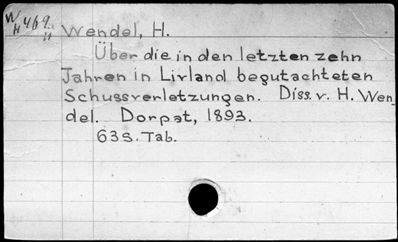 W/H 469. H
Wendel, H.
Über die in den letzten zehn
Jahren in Livland begutachteten
Schussverletzungen. Diss. v. H. Wen-
del. Dorpat, 1893.
63 S. Tab.